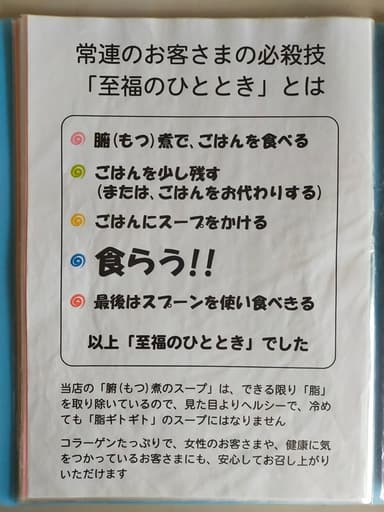 常連のお客さまの必殺技
「至福のひととき」とは
腑(もつ)煮で、ごはんを食べる
ごはんを少し残す
(または、ごはんをお代わりする)
ごはんにスープをかける
食らう!!
最後はスプーンを使い食べきる
以上「至福のひととき」でした
当店の「腑(もつ)煮のスープ」は、できる限り「脂」
を取り除いているので、見た目よりヘルシーで、冷め
ても「脂ギトギト」のスープにはなりません
コラーゲンたっぷりで、女性のお客さまや、健康に気
をつかっているお客さまにも、安心してお召し上がり
いただけます